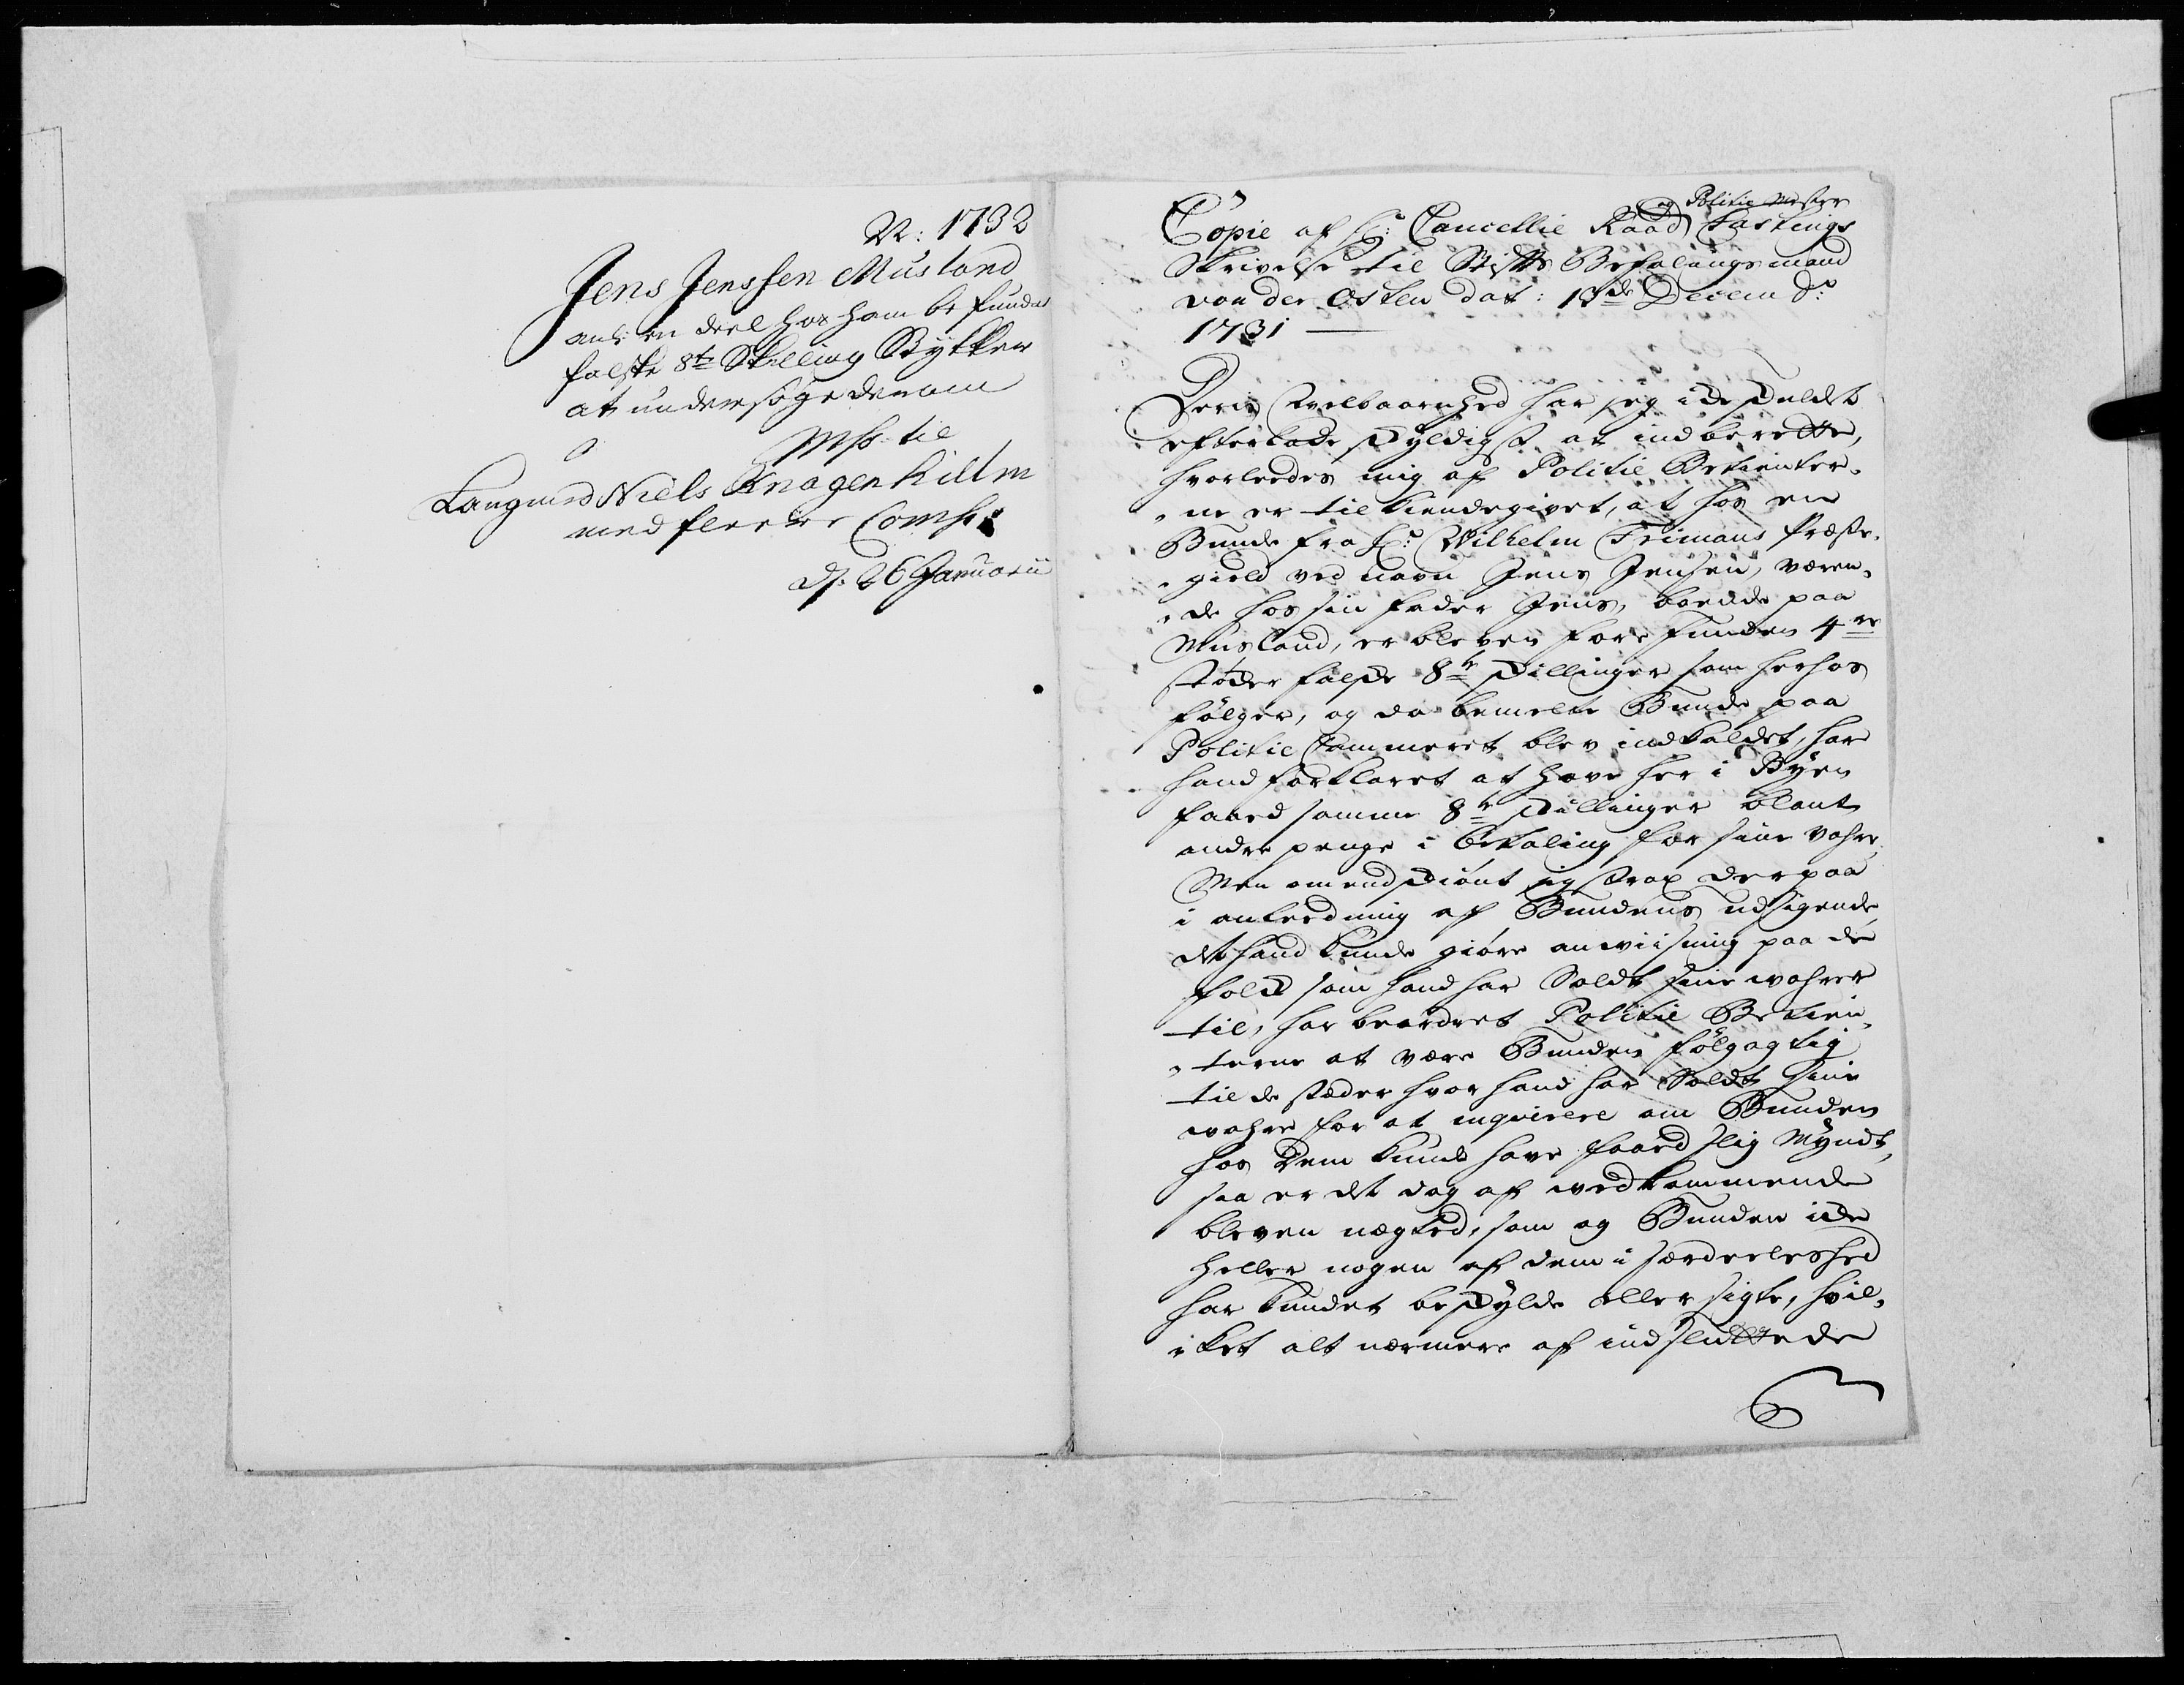 N: 1732
Jens Jenssen Musland
anl: en deel hos ham befunden
falske 8te Skelling Stykker
at undersøge derom
Miss. til
Laugmd Niels Knagenhielm
med fleere Comiss:
d: 26 Januarii
og Politie Mester
Copie af Hr: Cancellie Raad Hastings
Skrivelse til Stifts Befalingsmand
von der Osten dat: 13de Decem dr:
1731
Deris Welbaarnhed har jeg icke skuldet
efterlade skyldigst at indberette,
hvorledes mig af Politie Betienter-
ne er tilkiendegivet, at hos en
Bunde fra Hr: Wilhelm Frimans Præste-
gield ved navn Jens Jensen, væren-
de hos sin fader Jens, boende paa
Musland, er bleven forefunden 4re
støder falske 8te skillinger som herhos
følger, og da bemelte Bunde paa
Politie Cammeret blev indkaldet, har
hand forklaret at have her i Byen
faaed samme 8te skillinger blant
andre penge i betaling for sine vahre,
Men omendskiønt jeg strax derpaa
i anleedning af Bundens udsigende
det hand kunde giøre anviisning paa de
folck som hand har Soldt sine wahrer
til, har beordret Politie Betien-
terne at være Bunden følgagtig
til de stæder hvor hand har Soldt sine
wahre for at inqvirere om Bunden
hos dem kunde have faaed slig Myndt,
saa er det dog af wedkommende
bleven nægted, som og Bunden icke
heller nogen af dem i særdeeleshed
har kundet beskylde eller sigte, hvil-
ket alt nærmere af indsluttede